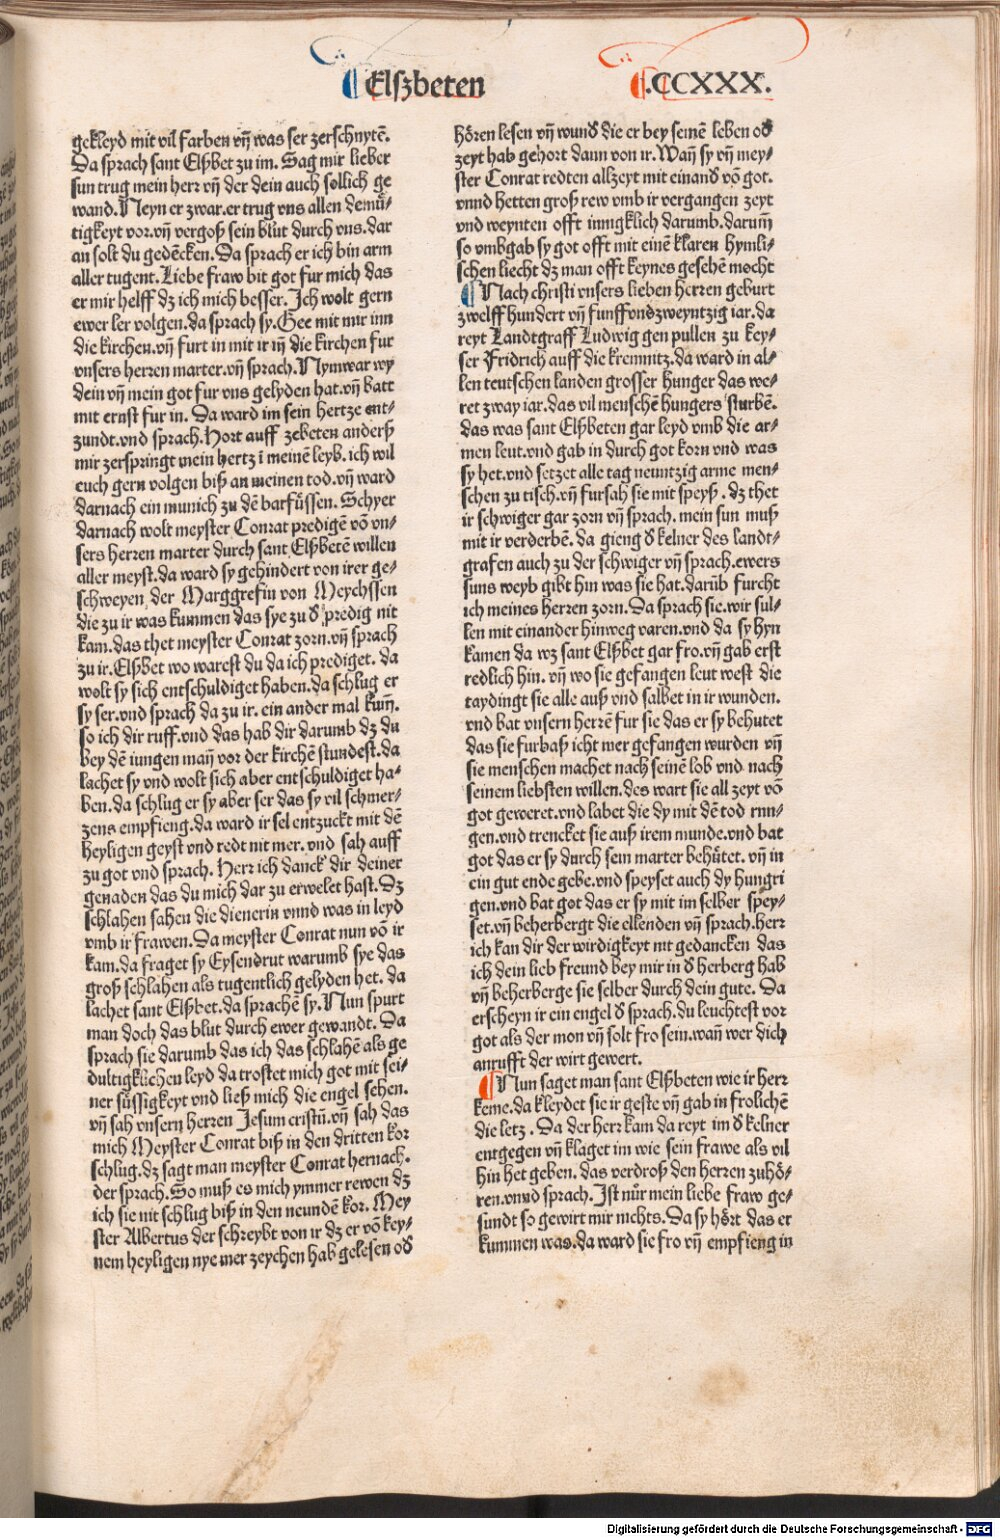 Elßbeten
.CCXXX.
gekleyd mit vil farben vñ was ser zerschnytē.
Da sprach sant Elßbet zu im. Sag mir lieber
sun trug mein herr vñ der dein auch sollich ge
wand. Neyn er zwar. er trug vns allen demü⸗
tigkeyt vor. vñ vergoß sein blut durch vns. dar
an solt du gedēcken. Da sprach er ich bin arm
aller tugent. Liebe fraw bit got fur mich das
er mir helff dz ich mich besser. Ich wolt gern
ewer ler volgen. da sprach sy. Gee mit mir inn
die kirchen. vñ furt in mit ir iñ die kirchen fur
vnsers herren marter. vñ sprach. Nymwar wy
dein vñ mein got fur vns gelyden hat. vñ batt
mit ernst fur in. Da ward im sein hertze ent⸗
zundt. vnd sprach. Hort auff zebeten anderß
mir zerspringt mein hertz ī meinē leyb. ich wil
euch gern volgen biß an meinen tod. vñ ward
darnach ein munich zu dē barfüssen. Schyer
darnach wolt meyster Conrat predigē vō vn⸗
sers herren marter durch sant Elßbetē willen
aller meyst. da ward sy gehindert von irer ge⸗
schweyen der Marggrefin von Meychssen
die zu ir was kummen das sye zu d̕ predig nit
kam. das thet meyster Conrat zorn. vñ sprach
zu ir. Elßbet wo warest du da ich prediget. da
wolt sy sich entschuldiget haben. da schlug er
sy ser. vnd sprach da zu ir. ein ander mal kum̄.
so ich dir ruff. vnd das hab dir darumb dz du
bey dē iungen mañ vor der kirchē stundest. da
lachet sy vnd wolt sich aber entschuldiget ha⸗
ben. da schlug er sy aber ser das sy vil schmer⸗
zens empfieng. da ward ir sel entzuckt mit dē
heyligen geyst vnd redt nit mer. vnd sah auff
zu got vnd sprach. Herr ich danck dir deiner
genaden das du mich dar zu erwelet hast. Dz
schlahen sahen die dienerin vnnd was in leyd
vmb ir frawen. Da meyster Conrat nun vō ir
kam. da fraget sy Eysendrut warumb sye das
groß schlahen als tugentlich gelyden het. da
lachet sant Elßbet. da sprachē sy. Nun spurt
man doch das blut durch ewer gewandt. Da
sprach sie darumb das ich das schlahē als ge
dultigklichen leyd da trostet mich got mit sei⸗
ner süssigkeyt vnd ließ mich die engel sehen.
vñ sah vnsern herren Jesum cristū. vñ sah das
mich Meyster Conrat biß in den dritten kor
schlug. dz sagt man meyster Conrat hernach.
der sprach. So muß es mich ymmer rewen dz
ich sie nit schlug biß in den neundē kor. Mey
ster Albertus der schreybt von ir dz er vō key⸗
nem heyligen nye mer zeychen hab gelesen od̕
hören lesen vñ wund̕ die er bey seinē leben od̕
zeyt hab gehort dann von ir. Wañ sy vñ mey⸗
ster Conrat redten allzeyt mit einand̕ vō got.
vnnd hetten groß rew vmb ir vergangen zeyt
vnd weynten offt innigklich darumb. darum̄
so vmbgab sy got offt mit einē klaren hymli⸗
schen liecht dz man offt keynes gesehē mocht
Nach christi vnsers lieben herren geburt
zwelff hundert vñ funffvndzweyntzig iar. da
reyt Landtgraff Ludwig gen pullen zu key⸗
ser Fridrich auff die kremnitz. da ward in al⸗
len teutschen landen grosser hunger das we⸗
ret zway iar. das vil menschē hungers sturbē.
das was sant Elßbeten gar leyd vmb die ar⸗
men leut. vnd gab in durch got korn vnd was
sy het. vnd setzet alle tag neuntzig arme men⸗
schen zu tisch. vñ fursah sie mit speyß. dz thet
ir schwiger gar zorn vñ sprach. mein sun muß
mit ir verderbē. da gieng d̕ kelner des landt⸗
grafen auch zu der schwiger vñ sprach. ewers
suns weyb gibt hin was sie hat. darüb furcht
ich meines herren zorn. Da sprach sie. wir sul⸗
len mit einander hinweg varen. vnd da sy hyn
kamen da wz sant Elßbet gar fro. vñ gab erst
redlich hin. vñ wo sie gefangen leut west die
taydingt sie alle auß vnd salbet in ir wunden.
vnd bat vnsern herrē fur sie das er sy behutet
das sie furbaß icht mer gefangen wurden vñ
sie menschen machet nach seinē lob vnd nach
seinem liebsten willen. des wart sie all zeyt vō
got geweret. vnd labet die dy mit dē tod run⸗
gen. vnd trencket sie auß irem munde. vnd bat
got das er sy durch sein marter behütet. vñ in
ein gut ende gebe. vnd speyset auch dy hungri
gen. vnd bat got das er sy mit im selber spey⸗
set. vñ beherbergt die ellenden vñ sprach. herr
ich kan dir der wirdigkeyt nit gedancken das
ich dein lieb freund bey mir in d̕ herberg hab
vñ beherberge sie selber durch dein gute. Da
erscheyn ir ein engel d̕ sprach. du leuchtest vor
got als der mon vñ solt fro sein. wañ wer dich
anrufft der wirt gewert.
Nun saget man sant Elßbeten wie ir herr
keme. da kleydet sie ir geste vñ gab in frolichē
die letz. Da der herr kam da reyt im d̕ kelner
entgegen vñ klaget im wie sein frawe als vil
hin het geben. das verdroß den herren zuhö⸗
ren. vnnd sprach. Ist nür mein liebe fraw ge⸗
sundt so gewirt mir nichts. Da sy hört das er
kummen was. da ward sie fro vñ empfieng in
Digitalisierung gefördert durch die Deutsche Forschungsgemeinschaft - DFG